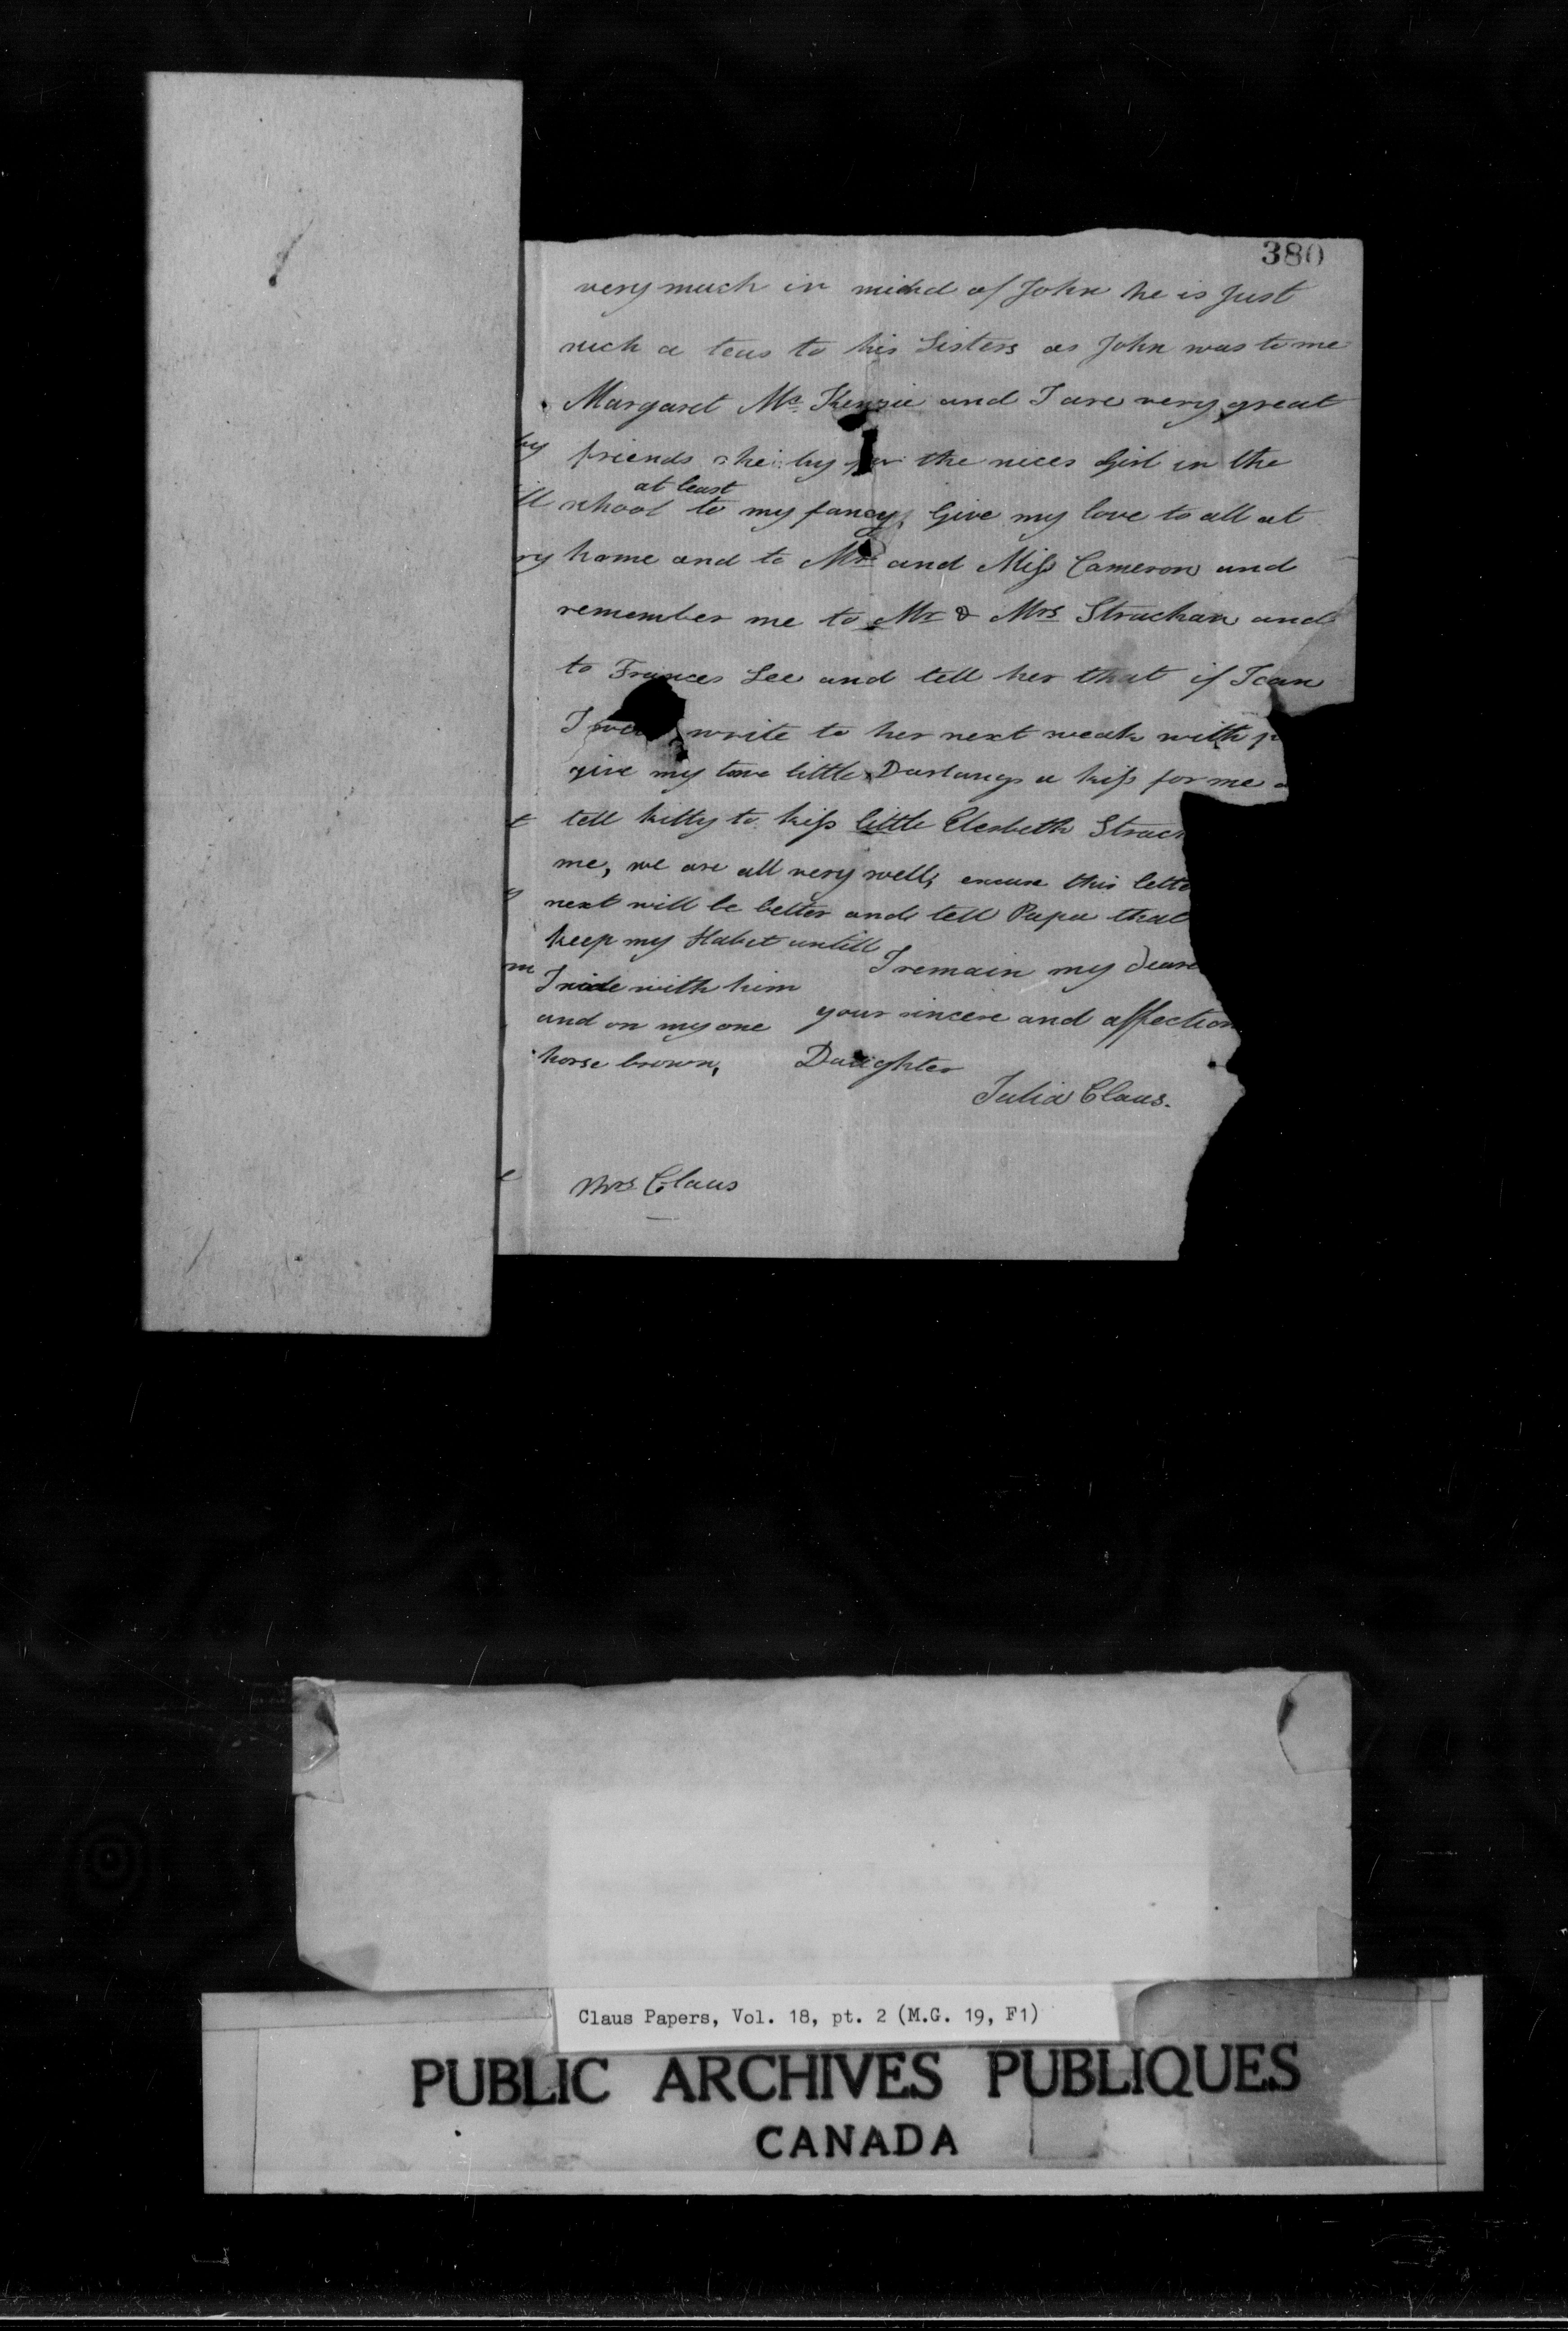 380
very much in mind of John he is Just
such a teas to his Sisters as John was to me
Margaret Mc Kenzie and I are very great
friends she by far the nices Girl in the
at least
school to my fancy, Give my love to all at
home and to Mrs and Miss Cameron and
remember me to Mr & Mrs Strachan and
to Frances Lee and tell her that if I can
I write to her next weak with
give my little Darlungs a kiss for me
tell kitty to kiss little Elesbeth Strac
me, we are all very well, excuse this lette
next will be better and tell Papa that
keep my Habet untill
I remain my Deare
I ride with him
your sincere and affection
and on my one
horse brown,
Daughter
Julia Claus.
Mrs Claus
Claus Papers, Vol. 18, pt. 2 (M.G. 19, F1)
PUBLIC ARCHIVES PUBLIQUES
CANADA